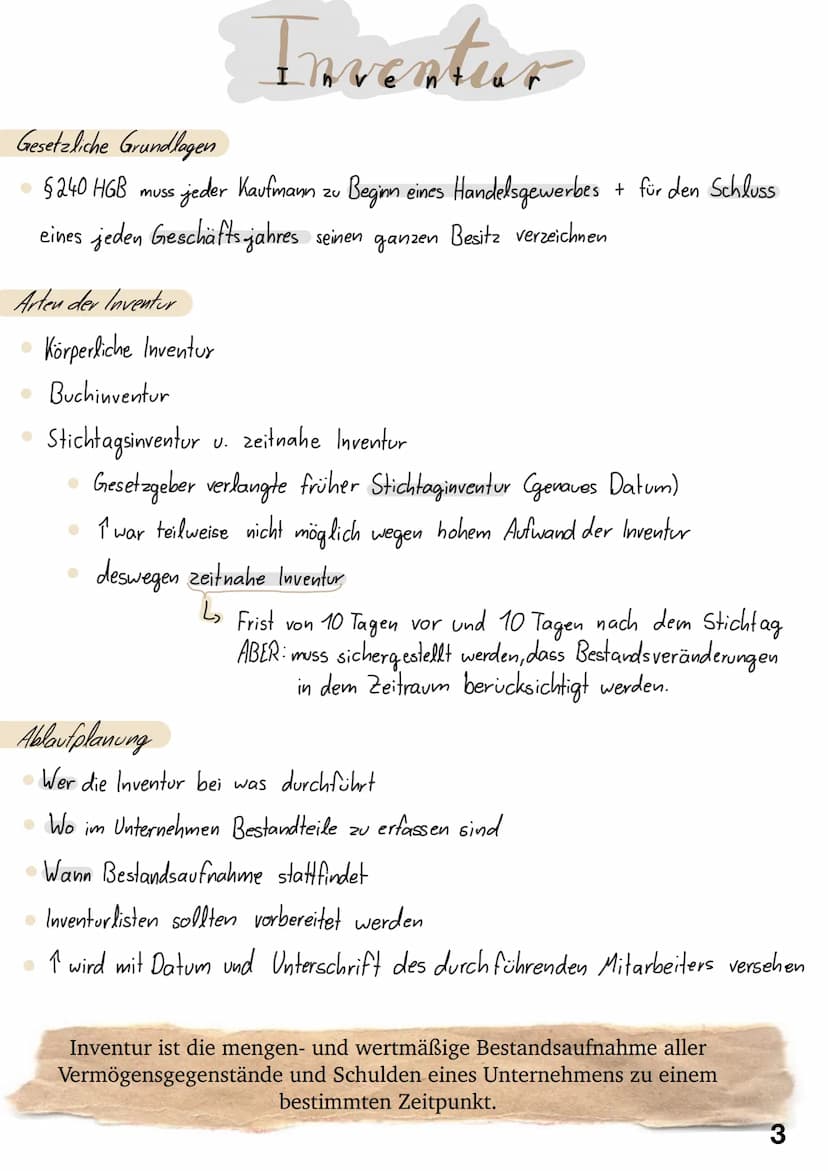 Inventur
Inventur
Gesetzliche Grundlagen
• §240 HGB muss jeder Kaufmann zu Beginn eines Handelsgewerbes + für den Schluss
eines jeden Geschäftsjahres seinen ganzen Besitz verzeichnen
Arten der Inventur
• Körperliche Inventur
• Buchinventur
• Stichtagsinventur u. zeitnahe Inventur
• Gesetzgeber verlangte früher Stichtaginventur (genaues Datum)
• ↑ war teilweise nicht möglich wegen hohem Aufwand der Inventur
• deswegen zeitnahe Inventur
↳ Frist von 10 Tagen vor und 10 Tagen nach dem Stichtag
ABER: muss sichergestellt werden, dass Bestandsveränderungen
in dem Zeitraum berücksichtigt werden.
Ablaufplanung
• Wer die Inventur bei was durchführt
• Wo im Unternehmen Bestandteile zu erfassen sind
• Wann Bestandsaufnahme stattfindet
• Inventurlisten sollten vorbereitet werden
• ↑ wird mit Datum und Unterschrift des durchführenden Mitarbeiters versehen
Inventur ist die mengen- und wertmäßige Bestandsaufnahme aller
Vermögensgegenstände und Schulden eines Unternehmens zu einem
bestimmten Zeitpunkt.
3